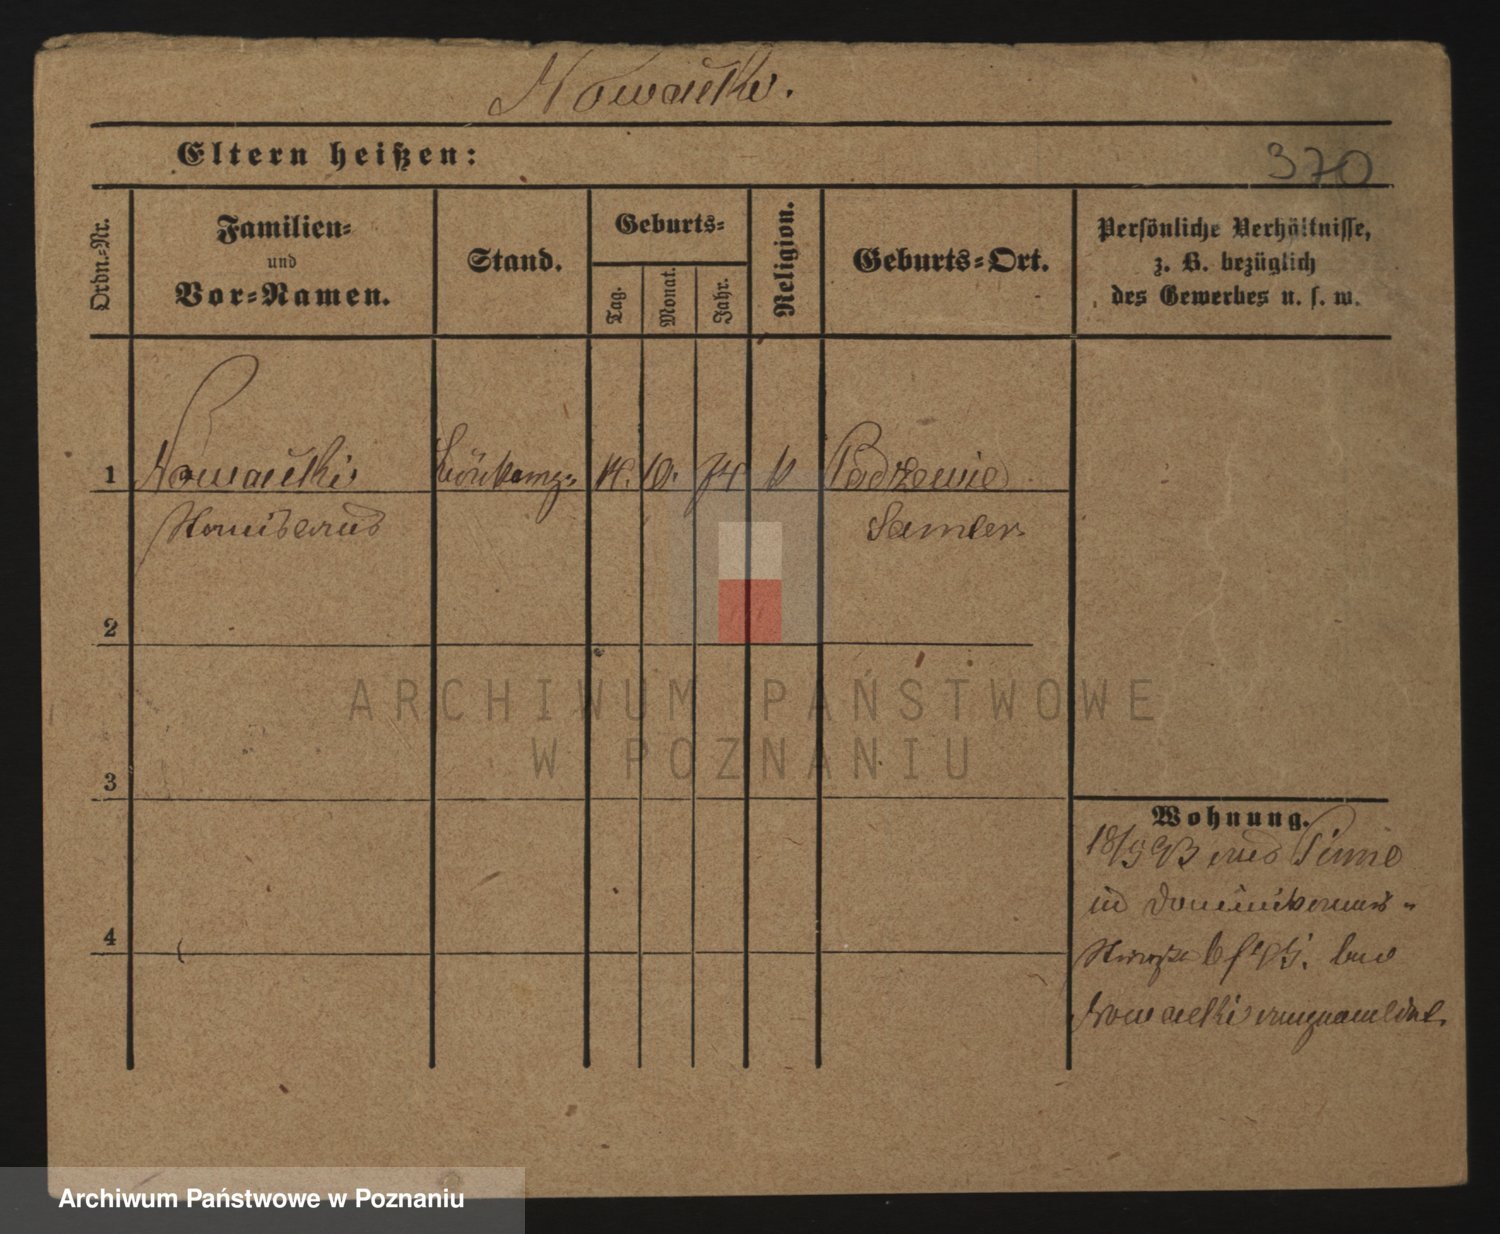 Nowacki.
Eltern heißen:
370
Ordn.-Nr.
Familien-
und
Vor-Namen.
Stand.
Geburts-
Tag.
Monat.
Jahr.
Religion.
Geburts-Ort.
Persönliche Verhältnisse,
z. B. bezüglich
des Gewerbes u. s. w.
1
Nowacki
10. 74 k Podrzewie
Stanislaus
Samter
2
3
4
Wohnung.
18/5 93 aus Pinne
in Dominikaner-
Straße 6 bei
Nowacki angemeldet.
ARCHIWUM PAŃSTWOWE
W POZNANIU
Archiwum Państwowe w Poznaniu